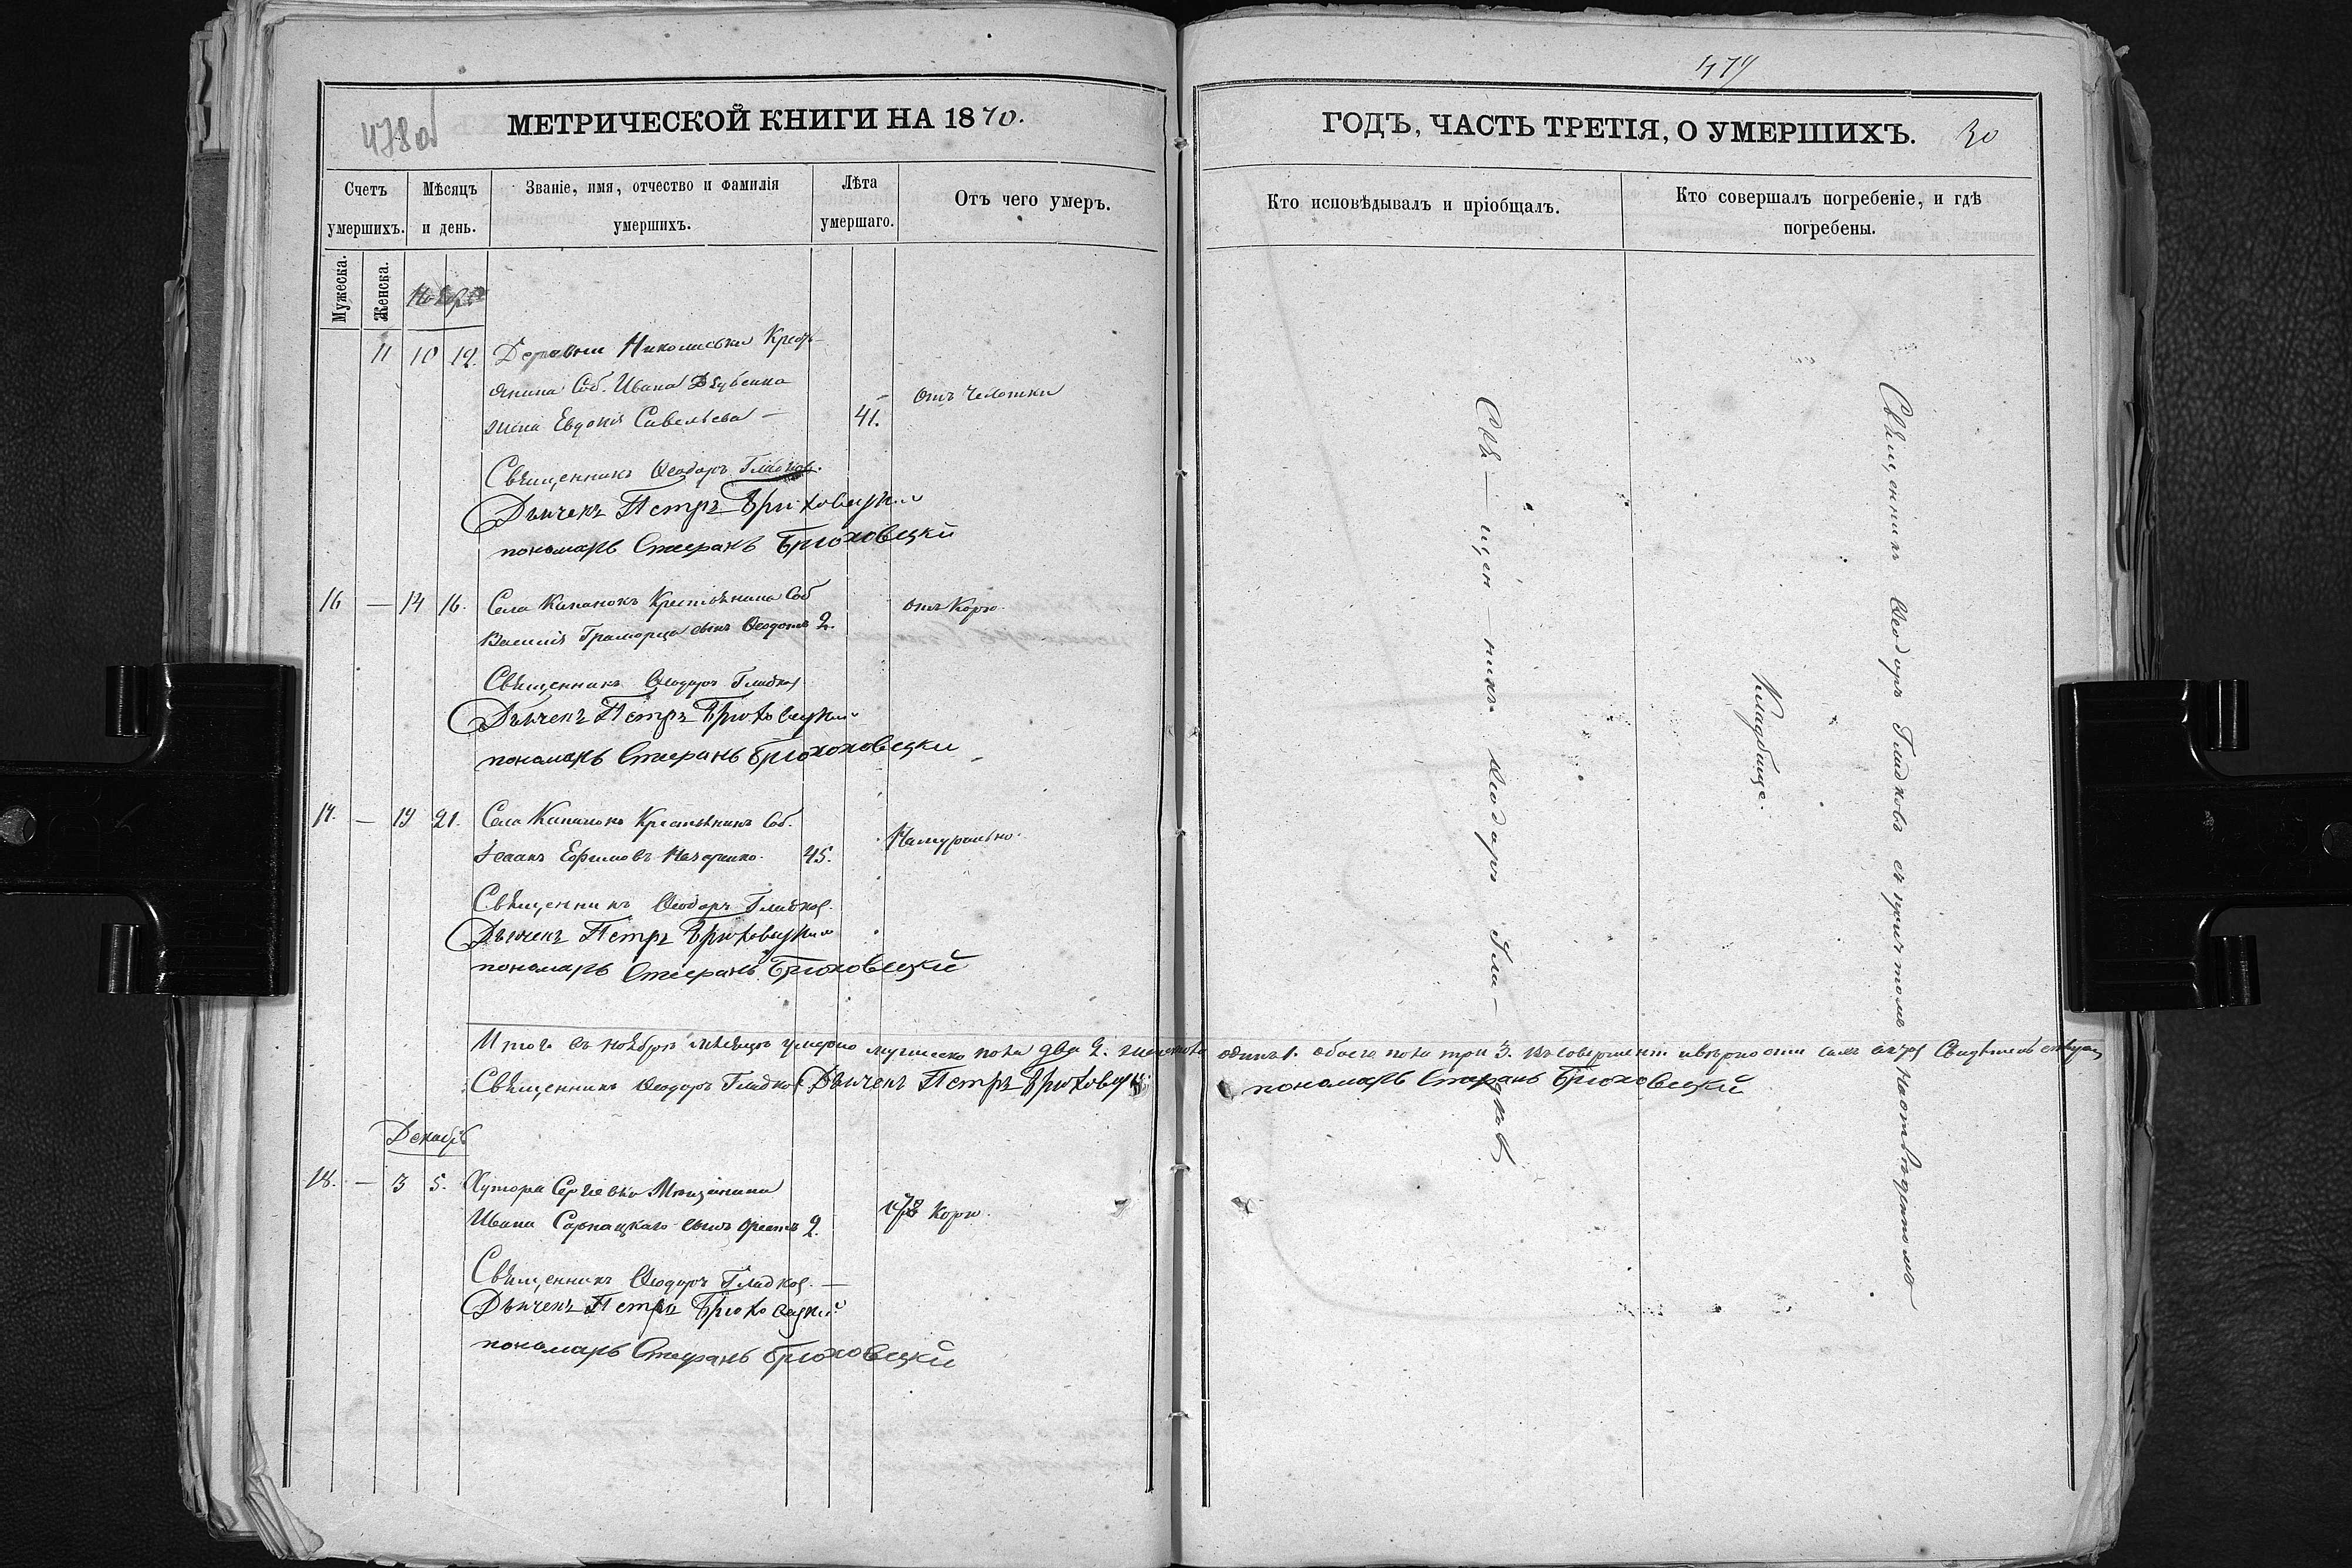 478об
МЕТРИЧЕСКОЙ КНИГИ НА 1870.
Счетъ умершихъ.
Мѣсяцъ и день.
Званіе, имя, отчество и фамилія умершихъ.
Лѣта умершаго.
Отъ чего умеръ.
Мужеска.
Женска.
Ноябрь
11 10 12. Деревни Николаевки Кресть-
янина Соб. Ивана
жена Евдокія Савельева — 41.
отъ Чехотки
Священникъ Ѳеодоръ Гладков.
Дьячекъ Петръ Брюховецкій
пономарь Стефанъ Брюховецкій
16 — 14 16. Села Капанокъ Крестьянина Соб
Василія сынъ Ѳеодотъ 2.
отъ Корю.
Священникъ Ѳеодоръ Гладков
Дьячекъ Петръ Брюховецкій
пономарь Стефанъ Брюхоховецкий
17. — 19 21. Села Капанокъ Крестьянинъ Соб.
Ефимовъ 45.
Натурально.
Священникъ Ѳеодоръ Гладков.
Дьячекъ Петръ Брюховецкій
пономарь Стефанъ Брюховецкій
Итого въ ноябрѣ мѣсяцѣ умерло мужеска пола два 2. женска одинъ 1. обоего пола три 3.
Священникъ Ѳеодоръ Гладков Дьячекъ Петръ Брюховецкій пономарь Стефанъ Брюховецкій
Декабрь
18. — 3 5. Хутора Сергіевки Мѣщанина
Ивана сынъ 2.
Корю.
Священникъ Ѳеодоръ Гладков. —
Дьячекъ Петръ Брюховецкій
пономарь Стефанъ Брюховецкій
479
ГОДЪ, ЧАСТЬ ТРЕТІЯ, О УМЕРШИХЪ.
30
Кто исповѣдывалъ и пріобщалъ.
Кто совершалъ погребеніе, и гдѣ погребены.
Свя — щен — никъ Ѳеодоръ Гла — дковъ
Священникъ Ѳеодоръ Гладковъ съ причтомъ на отведенномъ
Кладбище.